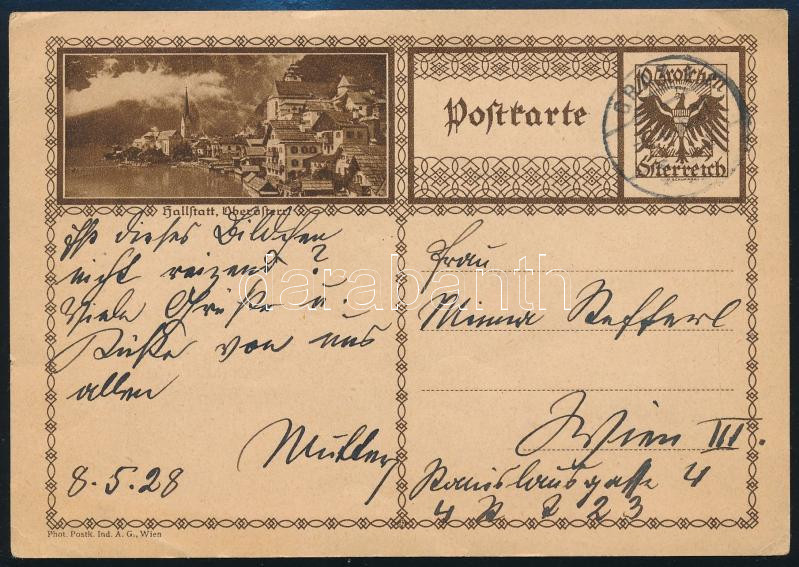 Hallstatt, Oberösterr.
Postkarte
10 Groschen
Österreich
Ist dieses Bildchen
nicht reizend?
Viele Grüße u.
Küße von uns
allen
Mutter
8.5.28
Frau
Minna Stefferl
Wien III.
Stanislausgasse 4
4 St T 23
Phot. Postk. Ind. A. G., Wien
darabanth